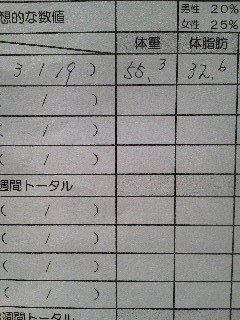 想的な数値
男性 20%
女性 25%
体重 体脂肪
3 1 19 ) 55.3 32.6
( / )
( / )
( / )
週間トータル
( / )
( / )
( / )
( / )
週間トータル